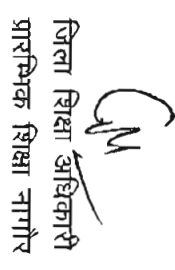 जिला शिक्षा अधिकारी
प्रारम्भिक शिक्षा नागौर